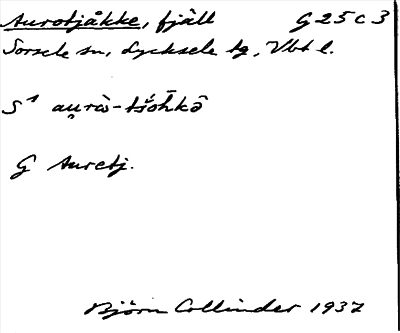 Aurotjåkke, fjäll G 25 C 3
Sorsele sn, Lycksele tg, Vbt l.
S¹ au̯rò-tšŏ́hkē
G Auretj.
Björn Collinder 1937